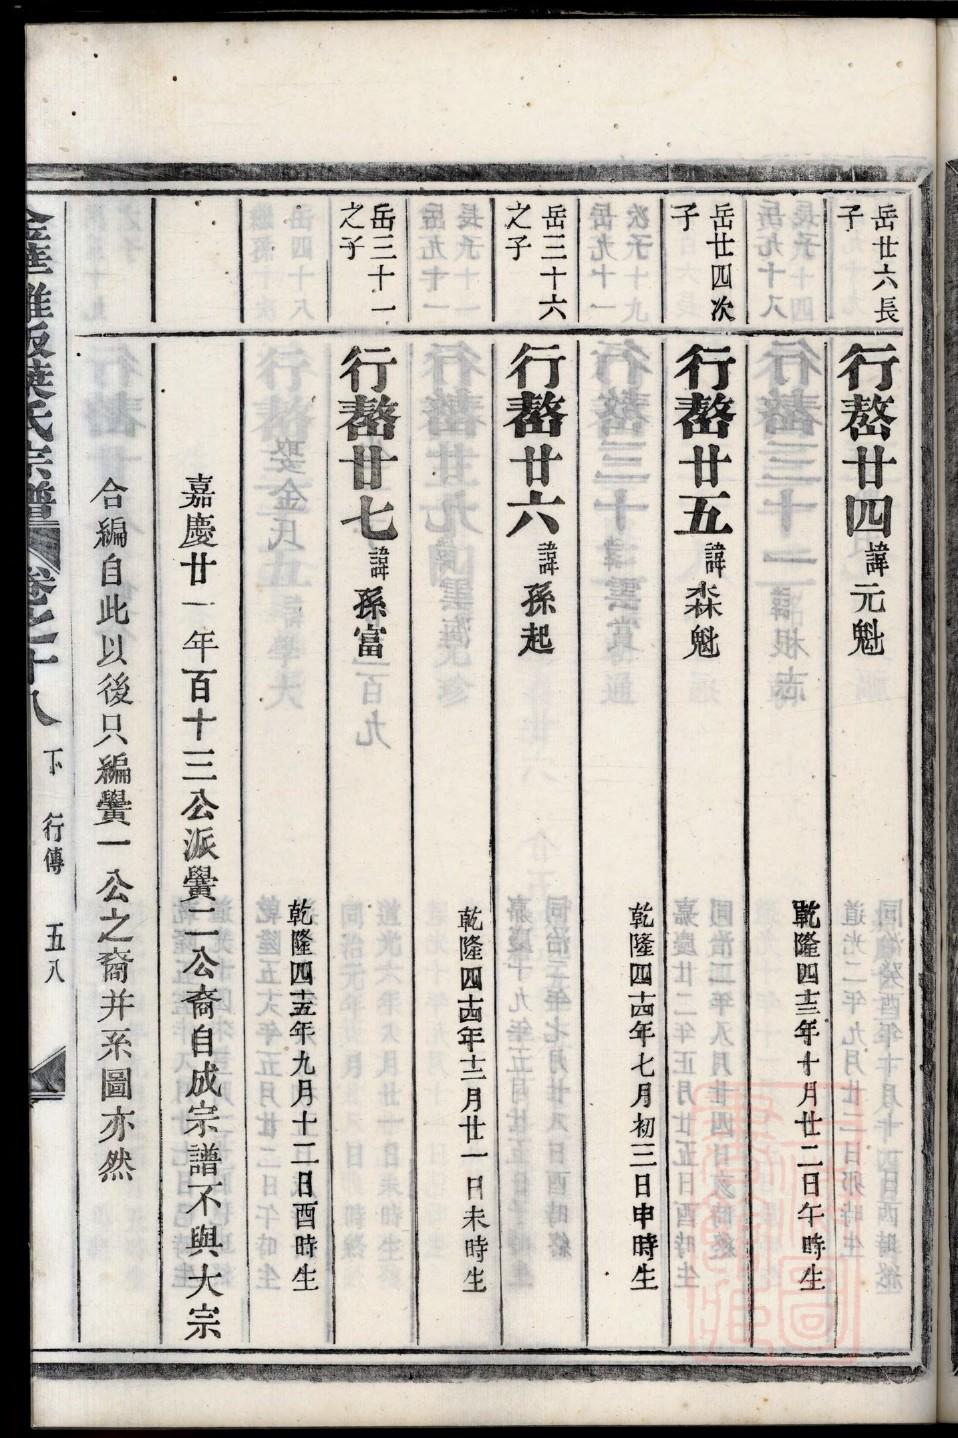 岳廿六長子
行嶅廿四 諱元魁 乾隆四十三年十月廿二日午時生
岳廿四次子
行嶅廿五 諱森魁 乾隆四十四年七月初三日申時生
岳三十六之子
行嶅廿六 諱孫起 乾隆四十四年十二月廿一日未時生
岳三十一之子
行嶅廿七 諱孫富 乾隆四十五年九月十二日酉時生
嘉慶廿一年百十三公派黌二公裔自成宗譜不與大宗
合編自此以後只編黌一公之裔并系圖亦然
葉氏宗譜 卷之十八 下 行傳 五八